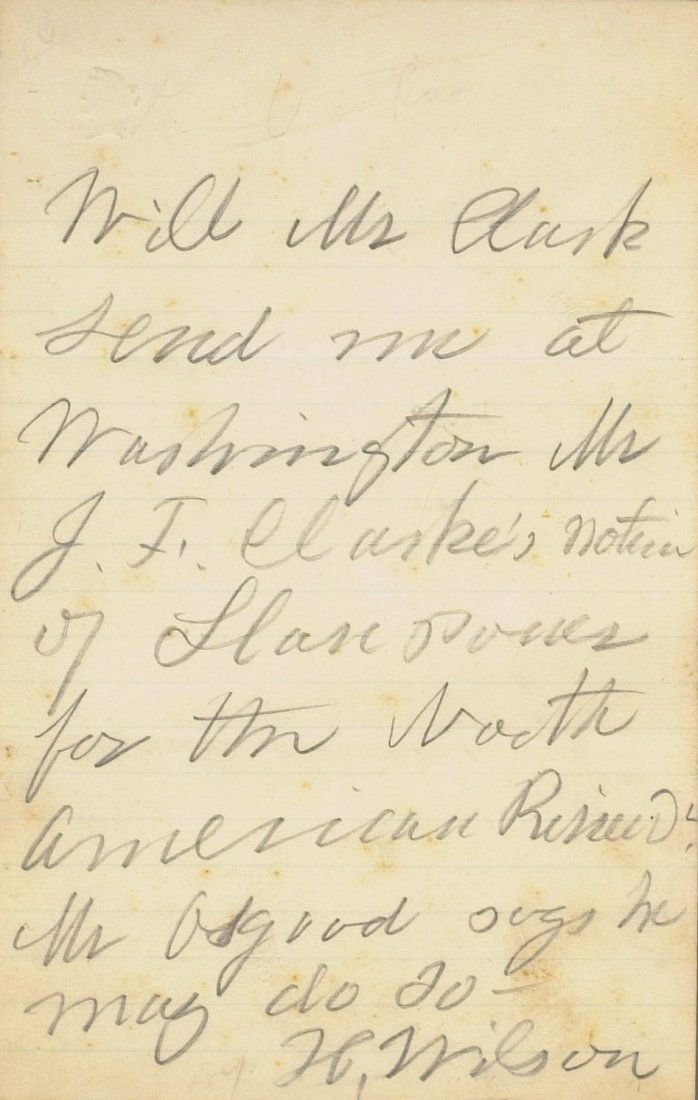 Will Mr Clark
send me at
Washington Mr
J. F. Clarke's notice
of Slave Power
for the North
American Review?
Mr Osgood says he
may do so—
H. Wilson